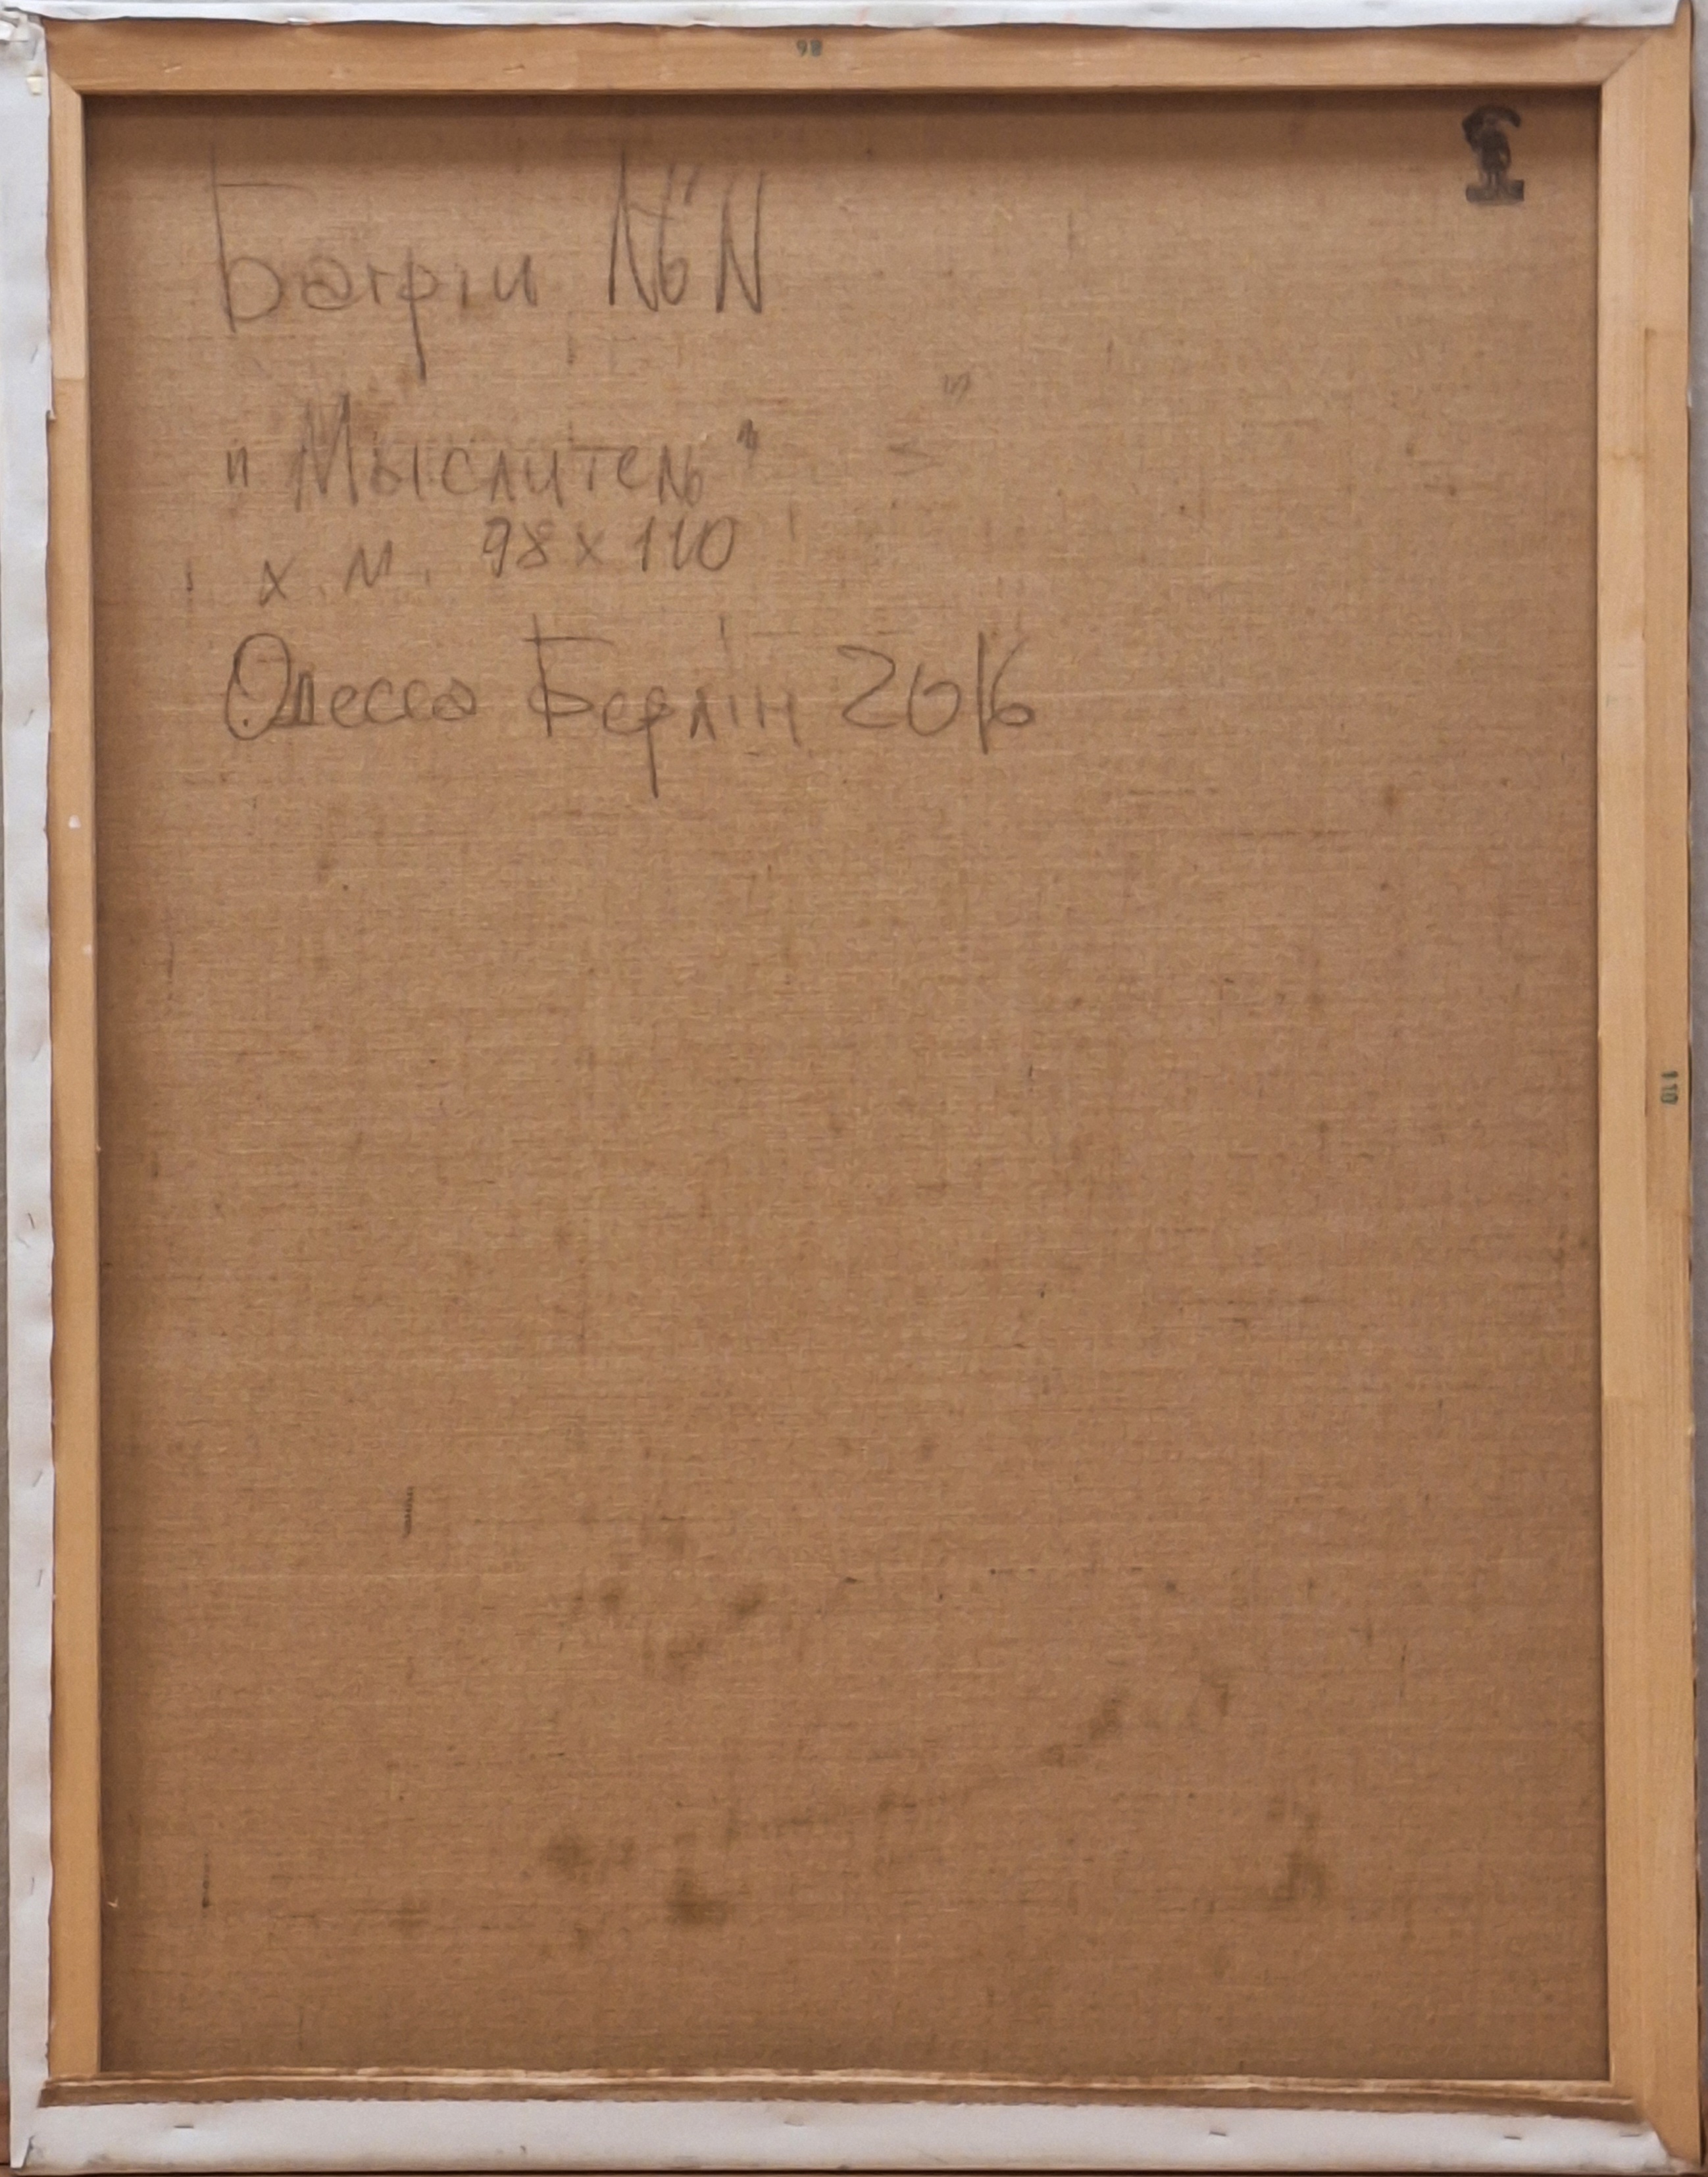 98
Багрій
„Мыслитель"
х. м. 98 х 110
Одесса Берлін 2016
110